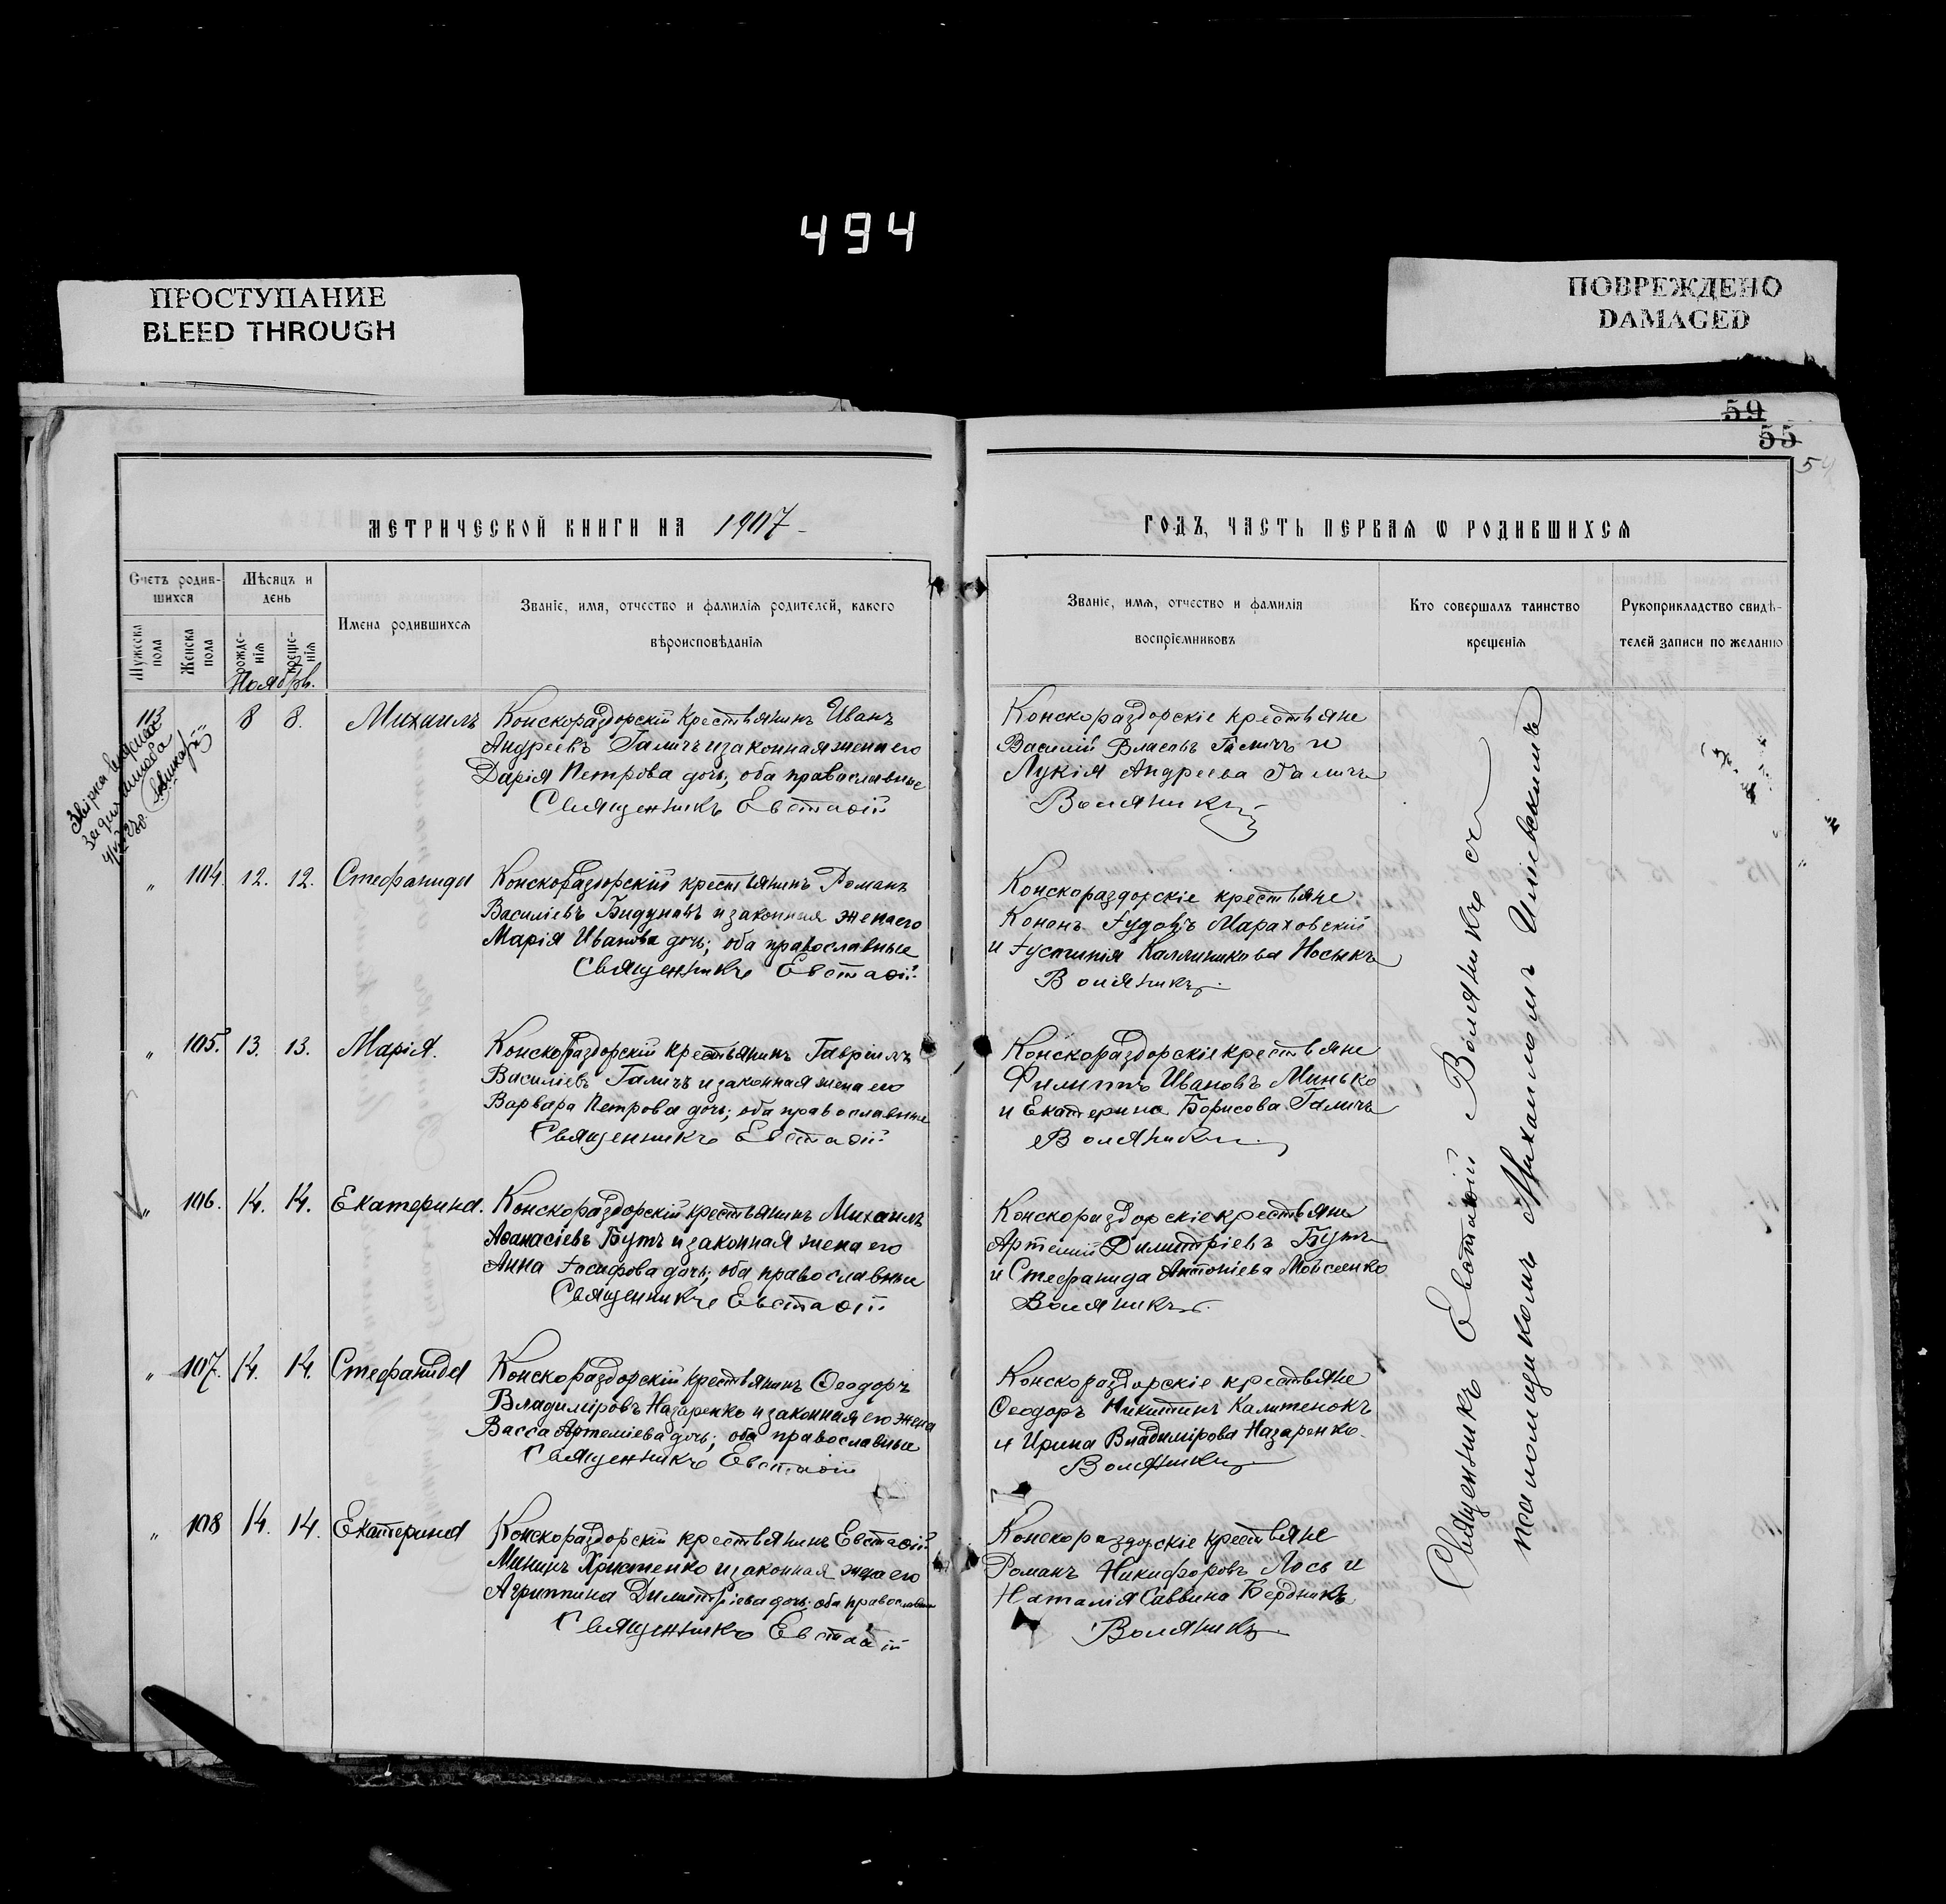 494
ПРОСТУПАНИЕ
BLEED THROUGH
ПОВРЕЖДЕНО
DAMAGED
59
55
54
МЕТРИЧЕСКОЙ КНИГИ НА 1907
ГОДЪ, ЧАСТЬ ПЕРВАЯ Ѡ РОДИВШИХСЯ
Счетъ родив-
шихся
Мужеска
пола
Женска
пола
Мѣсяцъ и
день
рожде-
нія
креще-
нія
Имена родившихся
Званіе, имя, отчество и фамилія родителей, какого
вѣроисповѣданія
Званіе, имя, отчество и фамилія
воспріемниковъ
Кто совершалъ таинство
крещенія
Рукоприкладство свидѣ-
телей записи по желанію
Ноябрь.
113 " 8 8. Михаилъ
Конскораздорскій крестьянинъ Иванъ
Андреевъ Галичъ и законная жена его
Дарія Петрова дочь; оба православные
Священникъ Евстаѳій
Конскораздорскіе крестьяне
Василій Власовъ Галичъ и
Лукія Андреева Галичъ
Воляникъ
" 104. 12. 12. Стефанида
Конскораздорскій крестьянинъ Романъ
Василіевъ Бидунавъ и законная жена его
Марія Иванова дочь; оба православные
Священникъ Евстаѳій
Конскораздорскіе крестьяне
Кононъ Іудовъ Мараховскій
и Іустинія Каллиникова Носикъ
Воляникъ.
" 105. 13. 13. Марія.
Конскораздорскій крестьянинъ Гавріилъ
Василіевъ Галичъ и законная жена его
Варвара Петрова дочь; оба православные
Священникъ Евстаѳій
Конскораздорскіе крестьяне
Филиппъ Ивановъ Минько
и Екатерина Борисова Галичъ
Воляникъ
" 106. 14. 14. Екатерина.
Конскораздорскій крестьянинъ Михаилъ
Аѳанасіевъ Бутъ и законная жена его
Анна Іосифова дочь; оба православные
Священникъ Евстаѳій
Конскораздорскіе крестьяне
Артемій Димитріевъ Бутъ
и Стефанида Антоніева Мойсеенко
Воляникъ.
" 107. 14. 14. Стефанида
Конскораздорскій крестьянинъ Ѳеодоръ
Владиміровъ Назаренко и законная его жена
Васса Артеміева дочь; оба православные
Священникъ Евстаѳій
Конскораздорскіе крестьяне
Ѳеодоръ Никитинъ Калитенокъ
и Ирина Владимірова Назаренко.
Воляникъ
" 108 14. 14. Екатерина
Конскораздорскій крестьянинъ Евстаѳій
Мининъ Христенко и законная жена его
Агриппина Димитріева дочь; оба православные
Священникъ Евстаѳій
Конскораздорскіе крестьяне
Романъ Никифоровъ Лось и
Наталія Саввина Бердникъ
Воляникъ
Священникъ Евстаѳій Воляникъ съ
псаломщикомъ Михаиломъ